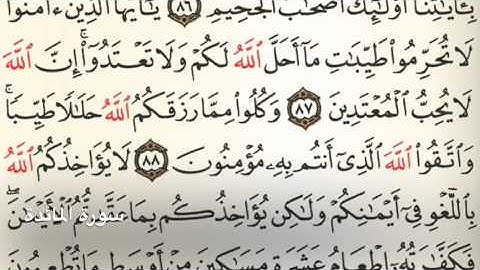 بِـَٔايَٰتِنَآ أُو۟لَٰٓئِكَ أَصْحَٰبُ ٱلْجَحِيمِ ٨٦ يَٰٓأَيُّهَا ٱلَّذِينَ ءَامَنُوا۟
لَا تُحَرِّمُوا۟ طَيِّبَٰتِ مَآ أَحَلَّ ٱللَّهُ لَكُمْ وَلَا تَعْتَدُوٓا۟ ۚ إِنَّ ٱللَّهَ
لَا يُحِبُّ ٱلْمُعْتَدِينَ ٨٧ وَكُلُوا۟ مِمَّا رَزَقَكُمُ ٱللَّهُ حَلَٰلًا طَيِّبًا ۚ
وَٱتَّقُوا۟ ٱللَّهَ ٱلَّذِىٓ أَنتُم بِهِۦ مُؤْمِنُونَ ٨٨ لَا يُؤَاخِذُكُمُ ٱللَّهُ
بِٱللَّغْوِ فِىٓ أَيْمَٰنِكُمْ وَلَٰكِن يُؤَاخِذُكُم بِمَا عَقَّدتُّمُ ٱلْأَيْمَٰنَ ۖ
سورة المائدة
فَكَفَّٰرَتُهُۥٓ إِطْعَامُ عَشَرَةِ مَسَٰكِينَ مِنْ أَوْسَطِ مَا تُطْعِمُونَ